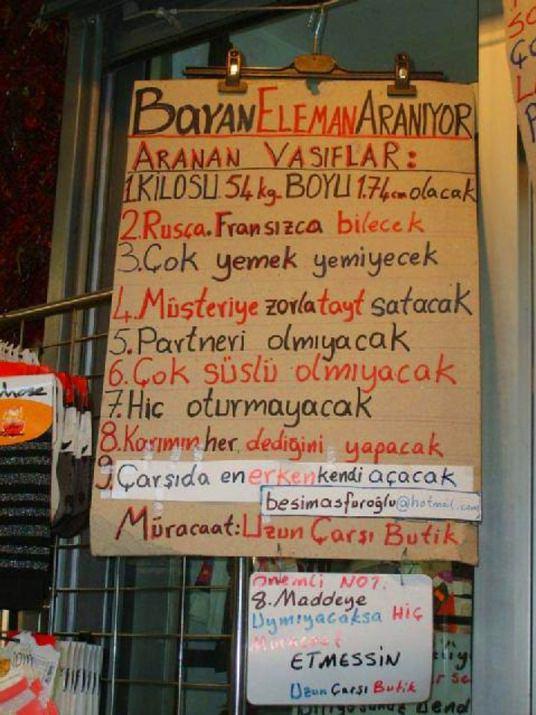 BAYAN ELEMAN ARANIYOR
ARANAN VASIFLAR:
1.KİLOSU 54 kg. BOYU 1.74cm olacak
2.Rusça.Fransızca bilecek
3.Çok yemek yemiyecek
4.Müşteriye zorla tayt satacak
5.Partneri olmıyacak
6.Çok süslü olmıyacak
7.Hiç oturmayacak
8.Karımın her dediğini yapacak
9.Çarşıda en erken kendi açacak
besimasfuroğlu@hotmail.com
Müracaat:Uzun Çarşı Butik
Önemli NOT.
8.Maddeye
Uymıyacaksa HİÇ
Müracaat
ETMESSİN
Uzun Çarşı Butik